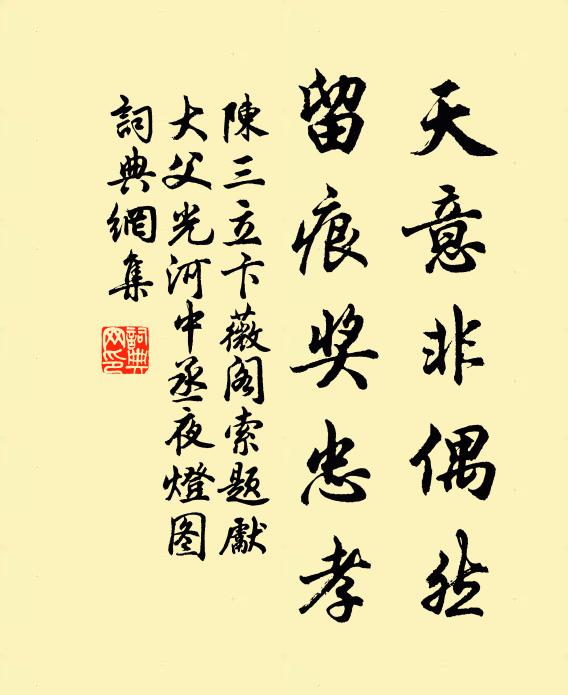 天意非偶然
留痕奖忠孝
陳三立卞薇阁索题獻
大父光河中丞夜燈图
詞典網集
詞典网印